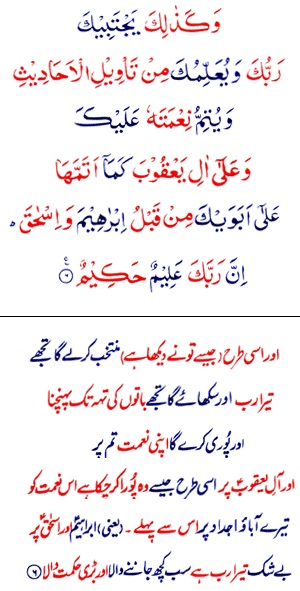 وَكَذٰلِكَ يَجْتَبِيْكَ
رَبُّكَ وَيُعَلِّمُكَ مِنْ تَاْوِيْلِ الْاَحَادِيْثِ
وَيُتِمُّ نِعْمَتَهٗ عَلَيْكَ
وَعَلٰٓى اٰلِ يَعْقُوْبَ كَمَاۤ اَتَمَّهَا
عَلٰٓى اَبَوَيْكَ مِنْ قَبْلُ اِبْرٰهِيْمَ وَاِسْحٰقَ ؕ
اِنَّ رَبَّكَ عَلِيْمٌ حَكِيْمٌ ﴿۶﴾
اور اسی طرح (جیسے تو نے دیکھا ہے) منتخب کرلے گا تجھے
تیرا رب اور سکھائے گا تجھے باتوں کی تہہ تک پہنچنا
اور پُوری کرے گا اپنی نعمت تم پر
اور آلِ یعقوبؑ پر اسی طرح جیسے وہ پُورا کرچکا ہے اس نعمت کو
تیرے آباؤ اجداد پر اس سے پہلے ۔ (یعنی) ابراہیمؑ اور اسحٰقؑ پر
بے شک تیرا رب ہے سب کچھ جاننے والا اور بڑی حکمت والا (۶)